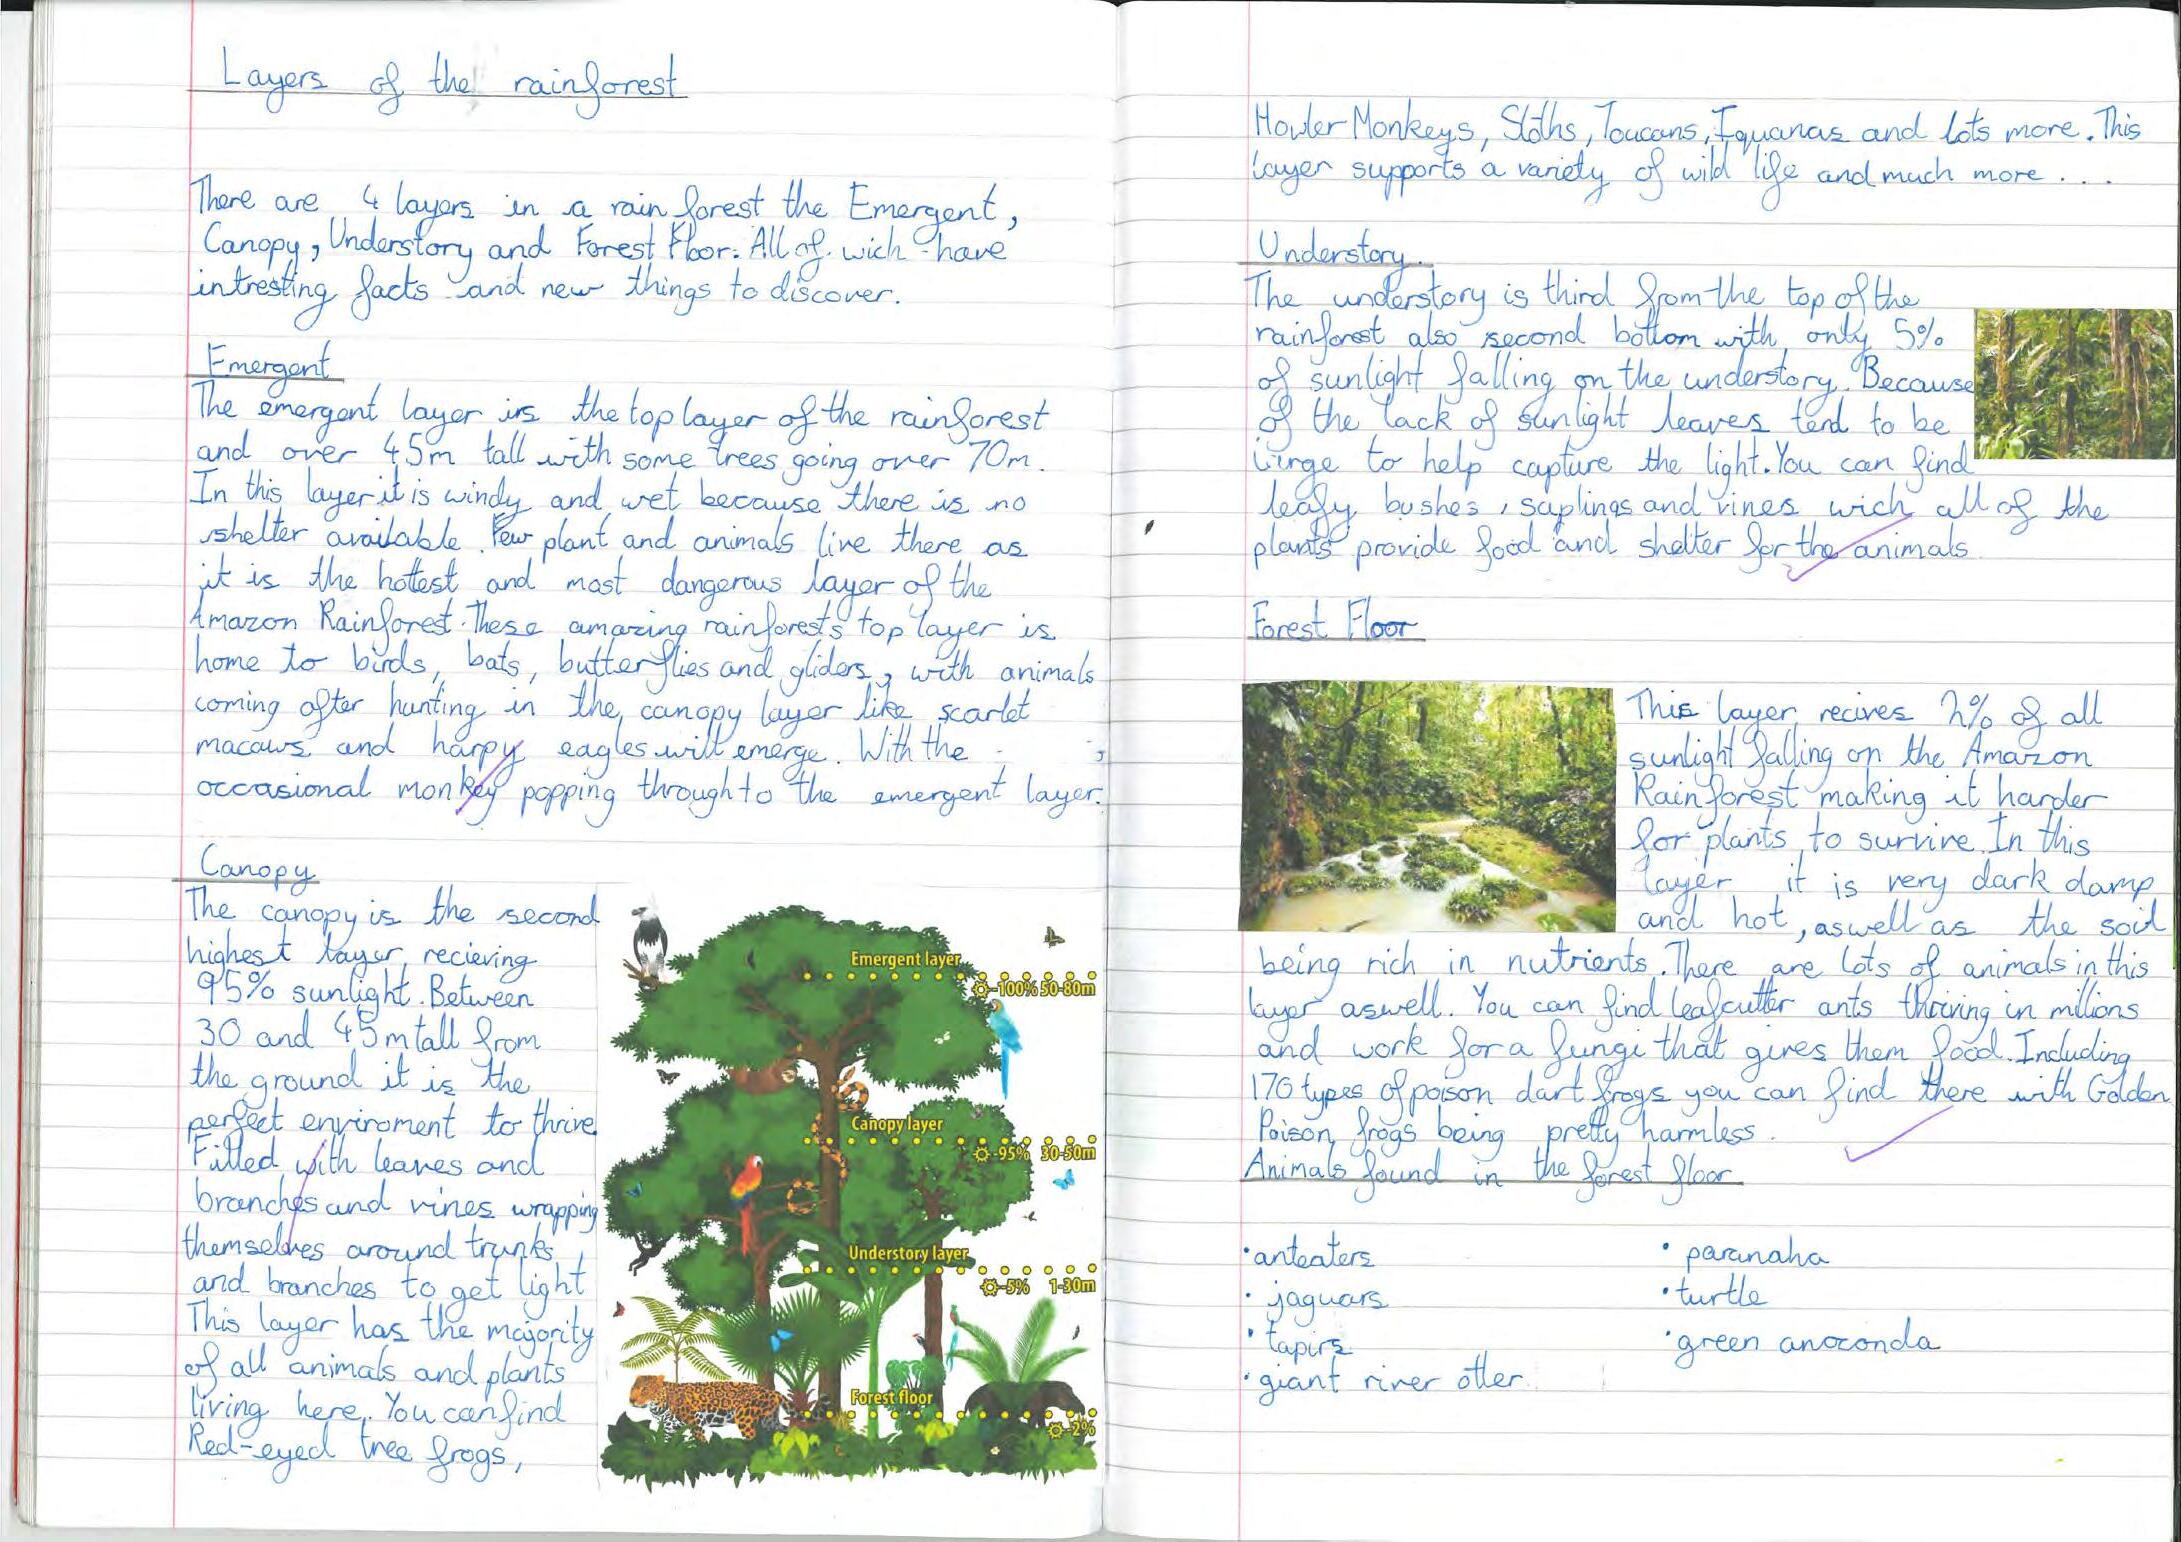 Layers of the rainforest
There are 4 layers in a rain forest the Emergent,
Canopy, Understory and Forest Floor. All of wich have
intresting facts and new things to discover.
Emergent
The emergent layer is the top layer of the rainforest
and over 45m tall with some trees going over 70m.
In this layer it is windy and wet because there is no
shelter available. Few plant and animals live there as
it is the hottest and most dangerous layer of the
Amazon Rainforest. These amazing rainforests top layer is
home to birds, bats, butterflies and gliders, with animals
coming after hunting in the canopy layer like scarlet
macaws and harpy eagles will emerge. With the
occasional monkey popping through to the emergent layer.
Canopy
The canopy is the second
highest layer, recieving
95% sunlight. Between
30 and 45m tall from
the ground it is the
perfect enviroment to thrive.
Filled with leaves and
branches and vines wrapping
themselves around trunks
and branches to get light
This layer has the majority
of all animals and plants
living here. You can find
Red-eyed tree frogs,
Emergent layer
-100% 50-80m
Canopy layer
-95% 30-50m
Understory layer
-5% 1-30m
Forest floor
-2%
Howler Monkeys, Sloths, Toucans, Iguanas and lots more. This
layer supports a variety of wild life and much more ...
Understory.
The understory is third from the top of the
rainforest also second bottom with only 5%
of sunlight falling on the understory. Because
of the lack of sunlight leaves tend to be
large to help capture the light. You can find
leafy bushes, saplings and vines wich all of the
plants provide food and shelter for the animals.
Forest Floor
This layer recives 2% of all
sunlight falling on the Amazon
Rainforest making it harder
for plants to survive. In this
layer it is very dark damp
and hot, aswell as the soil
being rich in nutrients. There are lots of animals in this
layer aswell. You can find leafcutter ants thriving in millions
and work for a fungi that gives them food. Including
170 types of poison dart frogs you can find there with Golden
Poison frogs being pretty harmless.
Animals found in the forest floor
• anteaters
• jaguars
• tapirs
• giant river otter
• paranaha
• turtle
• green anoconda